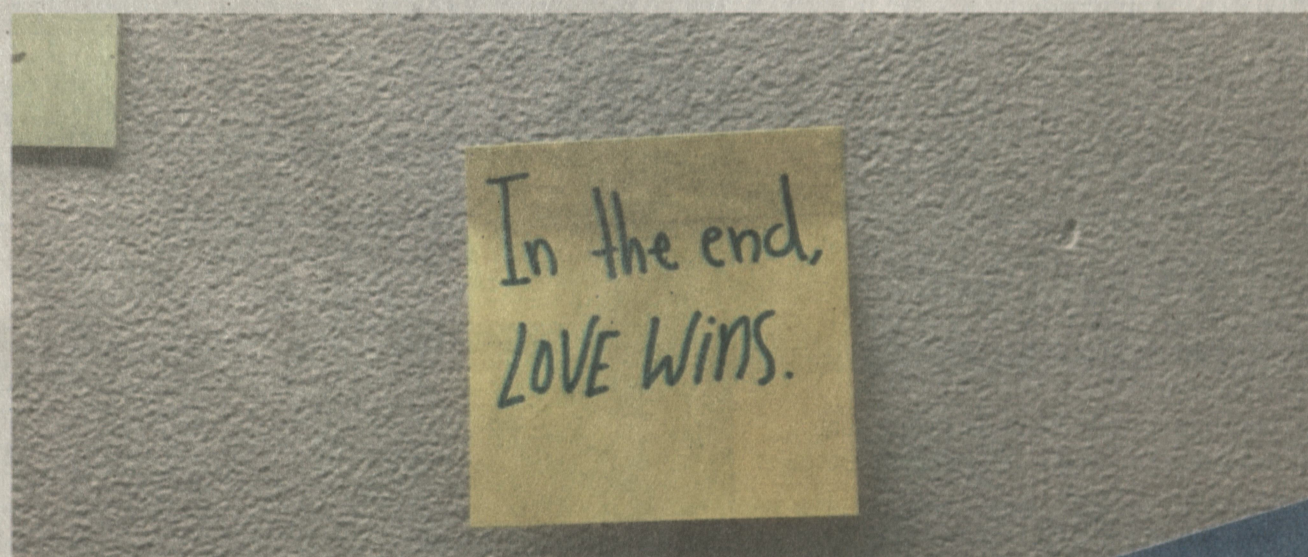 In the end,
LOVE Wins.